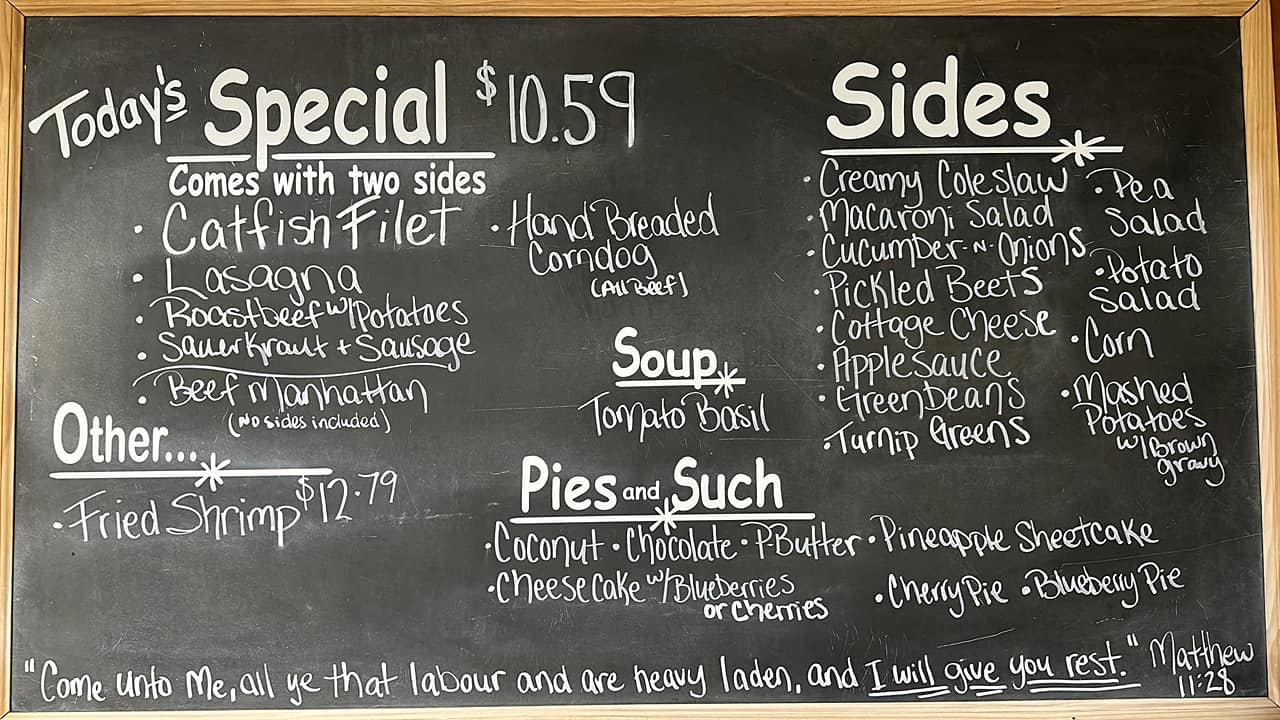 Today's Special $10.59
Comes with two sides
• Catfish Filet
• Lasagna
• Roastbeef w/Potatoes
• Sauerkraut + Sausage
• Beef Manhattan
(No sides included)
• Hand Breaded
Corndog
(All Beef)
Other...
• Fried Shrimp $12.79
Soup
Tomato Basil
Sides
• Creamy Coleslaw
• Macaroni Salad
• Cucumber-N-Onions
• Pickled Beets
• Cottage Cheese
• Applesauce
• Green Beans
• Turnip Greens
• Pea
Salad
• Potato
Salad
• Corn
• Mashed
Potatoes
w/Brown
gravy
Pies and Such
• Coconut • Chocolate • P-Butter • Pineapple Sheetcake
• Cheese Cake w/Blueberries
or Cherries
• Cherry Pie • Blueberry Pie
"Come unto Me, all ye that labour and are heavy laden, and I will give you rest." Matthew
11:28